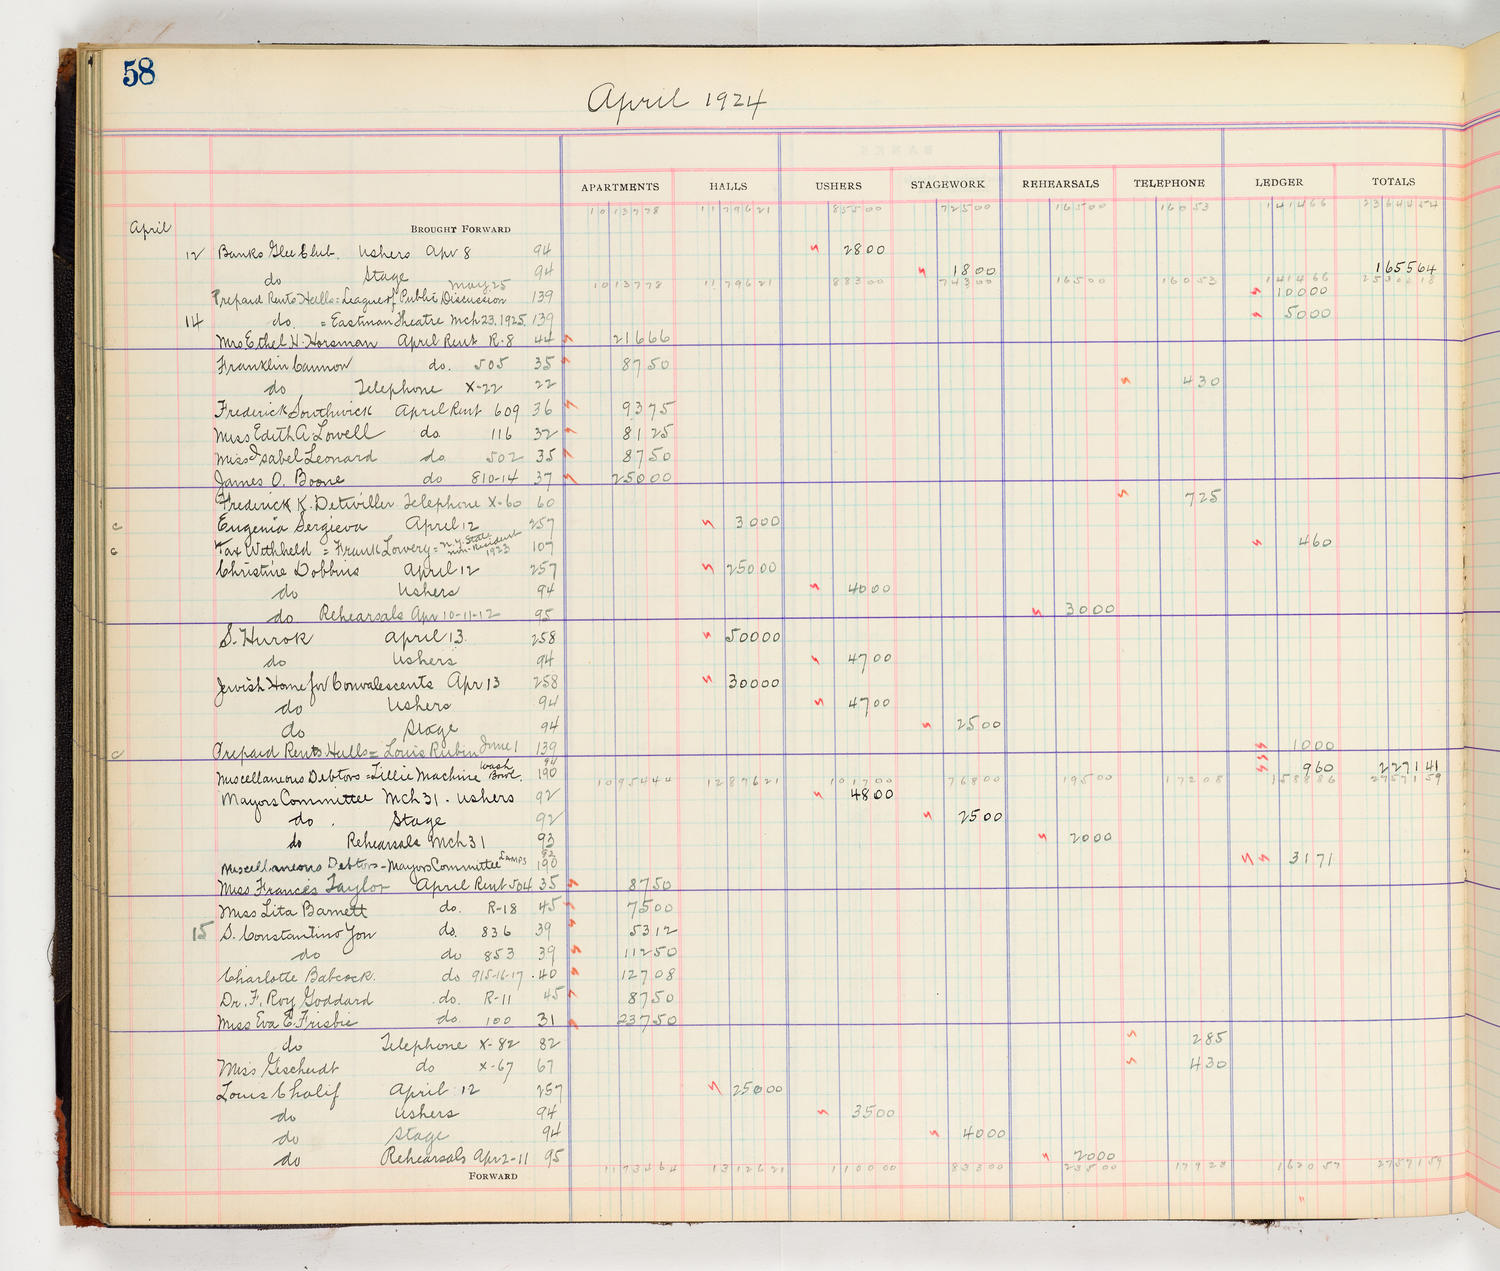 58
April 1924
APARTMENTS HALLS USHERS STAGEWORK REHEARSALS TELEPHONE LEDGER TOTALS
1013778 1179621 85500 72500 16500 16053 141466 2364454
April BROUGHT FORWARD
12 Banks Glee Club. Ushers Apr 8 94 2800
do Stage 94 1800 165564
1013778 1179621 88300 74300 16500 16053 141466
Prepaid Rents Halls = League of Public Discussion May 25 139 10000
14 do. = Eastman Theatre Mch 23. 1925. 139 5000
Mrs Ethel H. Horsman April Rent R-8 44 21666
Franklin Cannon do. 505 35 8750
do Telephone X-22 22 430
Frederick Southwick April Rent 609 36 9375
Miss Edith A. Lowell do 116 32 8125
Miss Isabel Leonard do 502 35 8750
James O. Boone do 810-14 37 25000
Frederick K. Detwiller Telephone X-60 60 725
c Eugenia Sergieva April 12 257 3000
c Tax Withheld = Frank Lowery = N.Y. State non-Resident 1923 107 460
Christine Dobbins April 12 257 25000
do Ushers 94 4000
do Rehearsals Apr 10-11-12 95 3000
S. Hurok April 13. 258 50000
do Ushers 94 4700
Jewish Home for Convalescents Apr 13 258 30000
do Ushers 94 4700
do Stage 94 2500
c Prepaid Rents Halls = Louis Rubin June 1 139 1000
Miscellaneous Debtors = Tillie Machine Wash Bowl. 94 190 960 227141
1095444 1287621 101700 76800 19500 17208 158886 2757159
Mayors Committee Mch 31 . Ushers 92 4800
do . Stage 92 2500
do Rehearsals Mch 31 93 2000
Miscellaneous Debtors - Mayors Committee Lamps 92 190 3171
Miss Frances Taylor April Rent 504 35 8750
Miss Lita Barnett do. R-18 45 7500
15 S. Constantino Yon do. 836 39 5312
do do 853 39 11250
Charlotte Babcock. do 915-16-17 40 12708
Dr. F. Roy Goddard do. R-11 45 8750
Miss Eva E. Frisbie do. 100 31 23750
do Telephone X-82 82 285
Miss Gescheidt do X-67 67 430
Louis Chalif April 12 257 25000
do Ushers 94 3500
do Stage 94 4000
do Rehearsals Apr 2-11 95 2000
FORWARD 1173464 1312621 110000 83300 23500 17923 162057 2757159